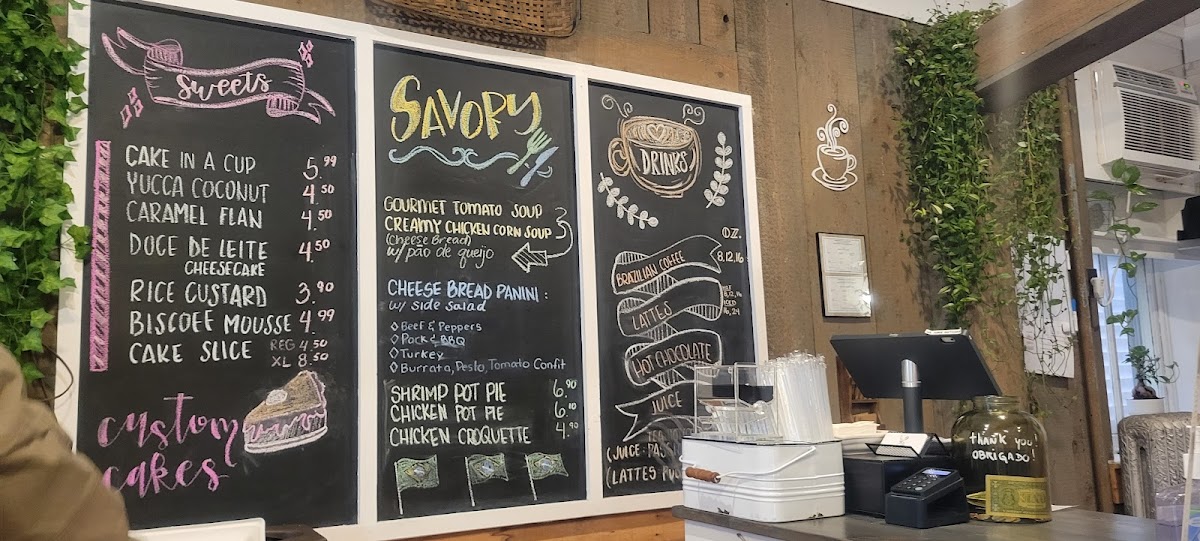 Sweets
CAKE IN A CUP 5.99
YUCCA COCONUT 4.50
CARAMEL FLAN 4.50
DOCE DE LEITE 4.50
CHEESECAKE
RICE CUSTARD 3.90
BISCOFF MOUSSE 4.99
CAKE SLICE REG 4.50
XL 8.50
custom
cakes
SAVORY
GOURMET TOMATO SOUP
CREAMY CHICKEN CORN SOUP
(Cheese Bread)
w/ pão de queijo
CHEESE BREAD PANINI:
w/ side salad
Beef & Peppers
Pork & BBQ
Turkey
Burrata, Pesto, Tomato Confit
SHRIMP POT PIE 6.90
CHICKEN POT PIE
CHICKEN CROQUETTE 4.90
DRINKS
OZ.
BRAZILIAN COFFEE 8,12,16
LATTES
HOT
8,12,16
ICED
16,24
HOT CHOCOLATE
JUICE
(JUICE: PAS
(LATTES
thank you!
OBRIGADO!